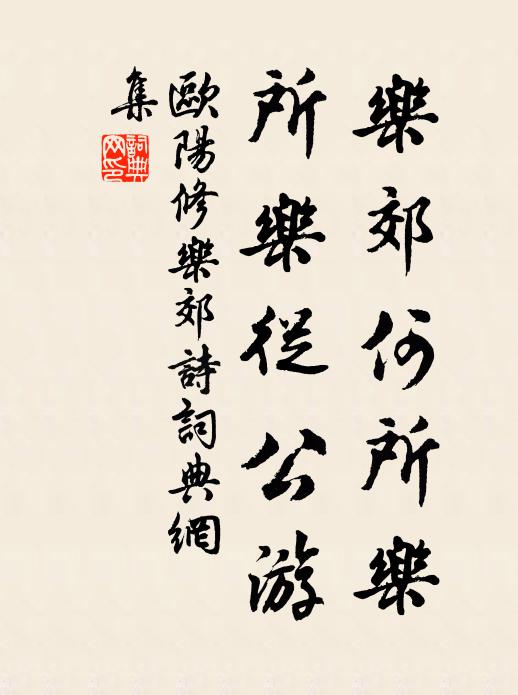 樂郊何所樂
所樂從公游
歐陽修樂郊詩詞典網
集
詞典
网印